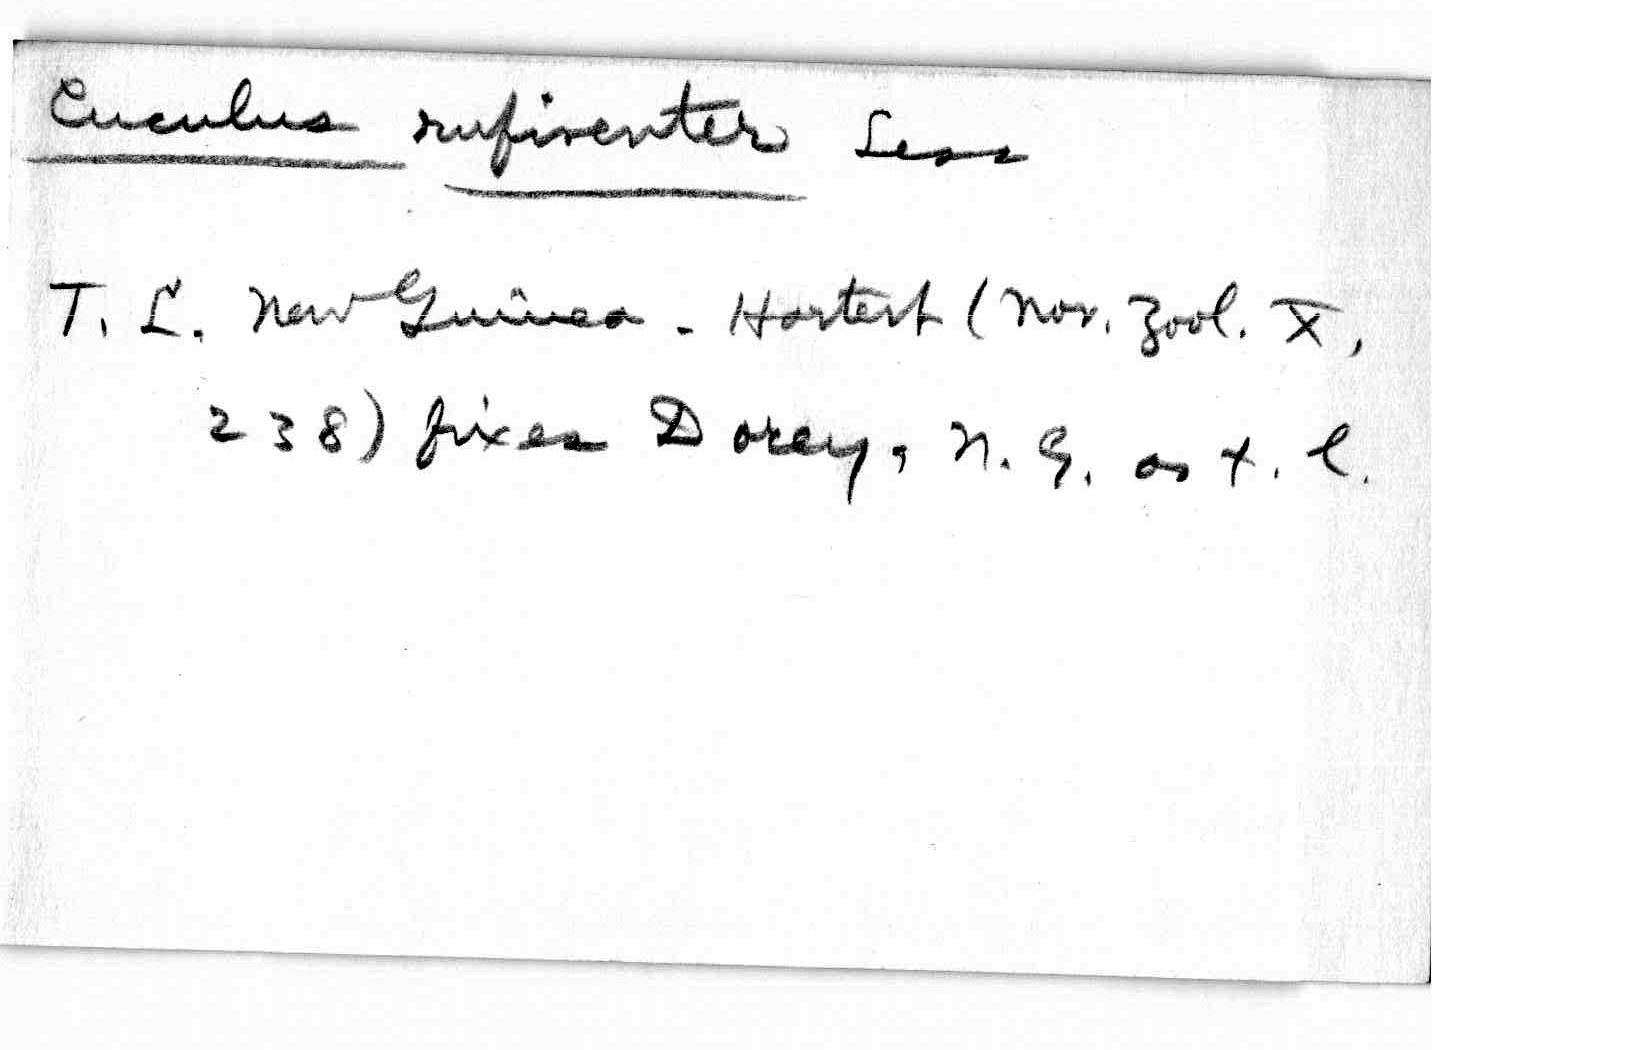 Cuculus rufiventer Less
T. L. New Guinea - Hartert (Nov. Zool. X,
238) fixes Dorey, N. G. as t. l.